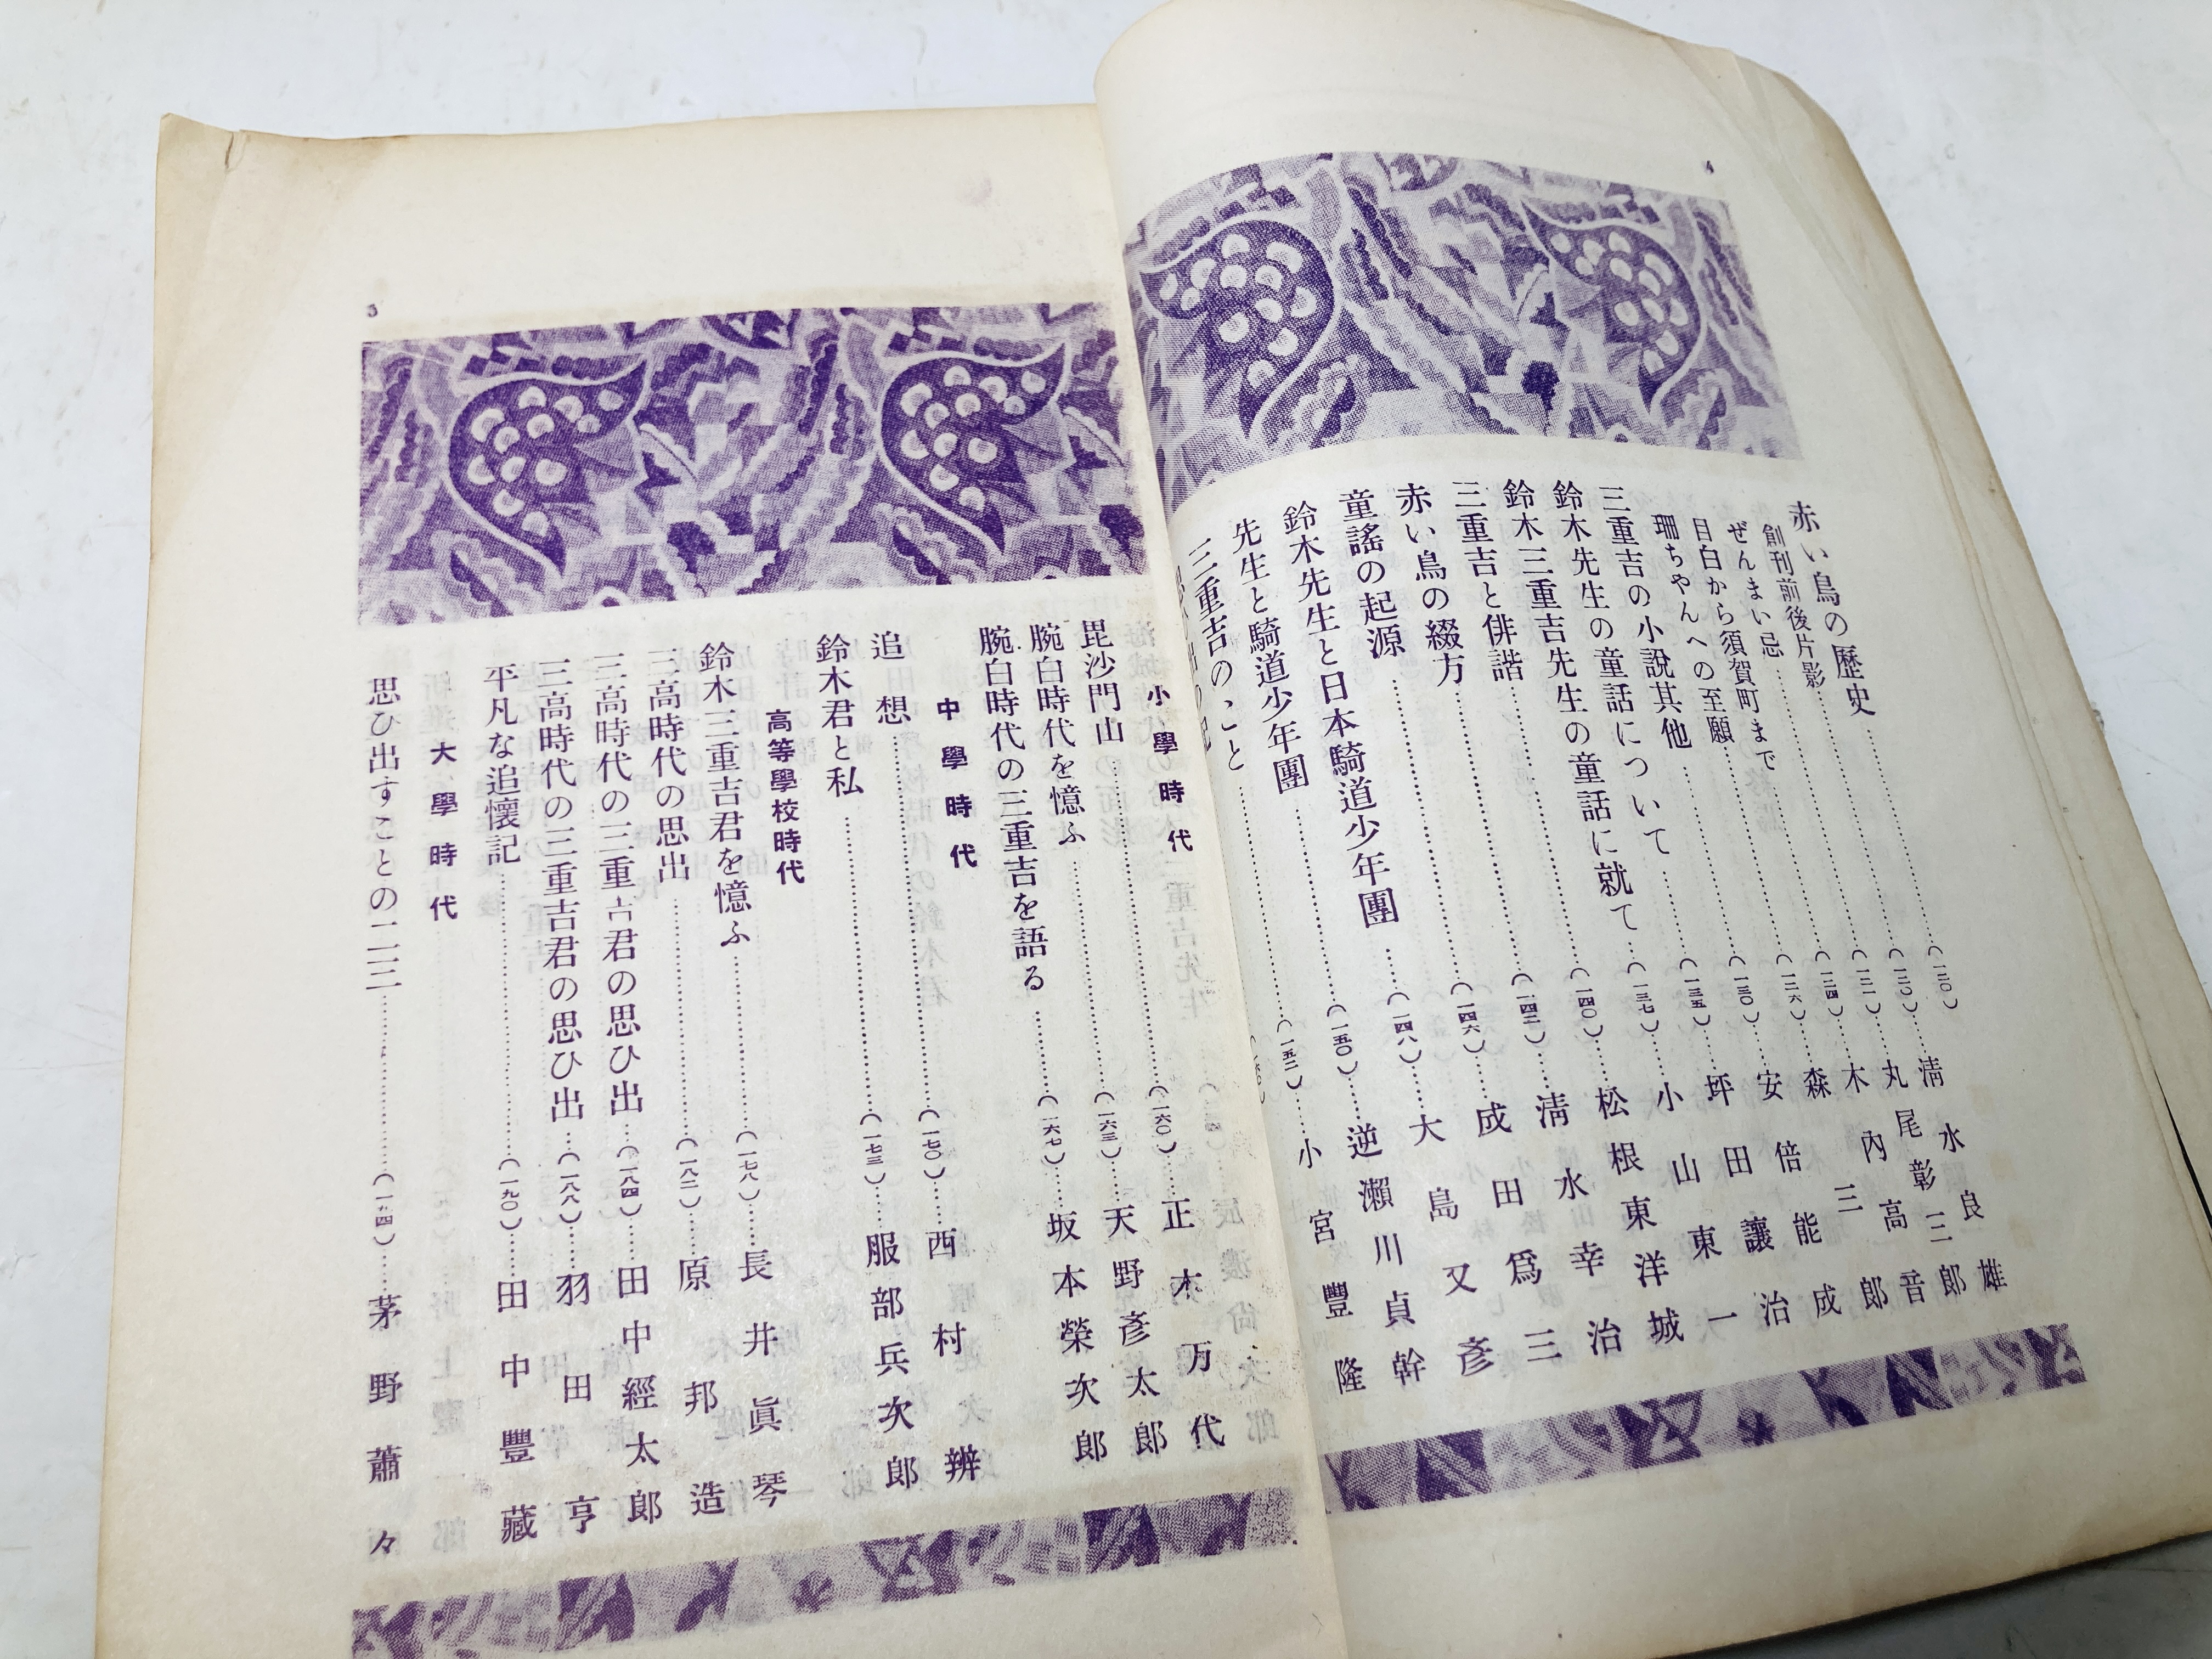 4
赤い鳥の歷史……(一二〇)……淸水良雄
創刊前後片影……(一二〇)……丸尾彰三郎
ぜんまい忌……(一二一)……木內高音
目白から須賀町まで……(一二四)……森三郎
珊ちやんへの至願……(一二六)……安倍能成
三重吉の小說其他……(一三〇)……坪田讓治
鈴木先生の童話について……(一三五)……小山東一
鈴木三重吉先生の童話に就て……(一三七)……松根東洋城
三重吉と俳諧……(一四〇)……淸水幸治
赤い鳥の綴方……(一四三)……成田爲三
童謠の起源……(一四六)……大島又彥
鈴木先生と日本騎道少年團……(一四八)……逆瀨川貞幹
先生と騎道少年團……(一五〇)
三重吉のこと……(一五二)……小宮豐隆
3
小學時代
毘沙門山……(一六〇)……正木万代
腕白時代を憶ふ……(一六三)……天野彥太郞
腕白時代の三重吉を語る……(一六七)……坂本榮次郞
中學時代
追想……(一七〇)……西村辨
鈴木君と私……(一七三)……服部兵次郞
高等學校時代
鈴木三重吉君を憶ふ……(一七八)……長井眞琴
三高時代の思出……(一八二)……原邦造
三高時代の三重吉君の思ひ出……(一八四)……田中經太郞
三高時代の三重吉君の思ひ出……(一八八)……羽田亨
平凡な追懷記……(一九〇)……田中豐藏
大學時代
思ひ出すことの二三……茅野蕭々